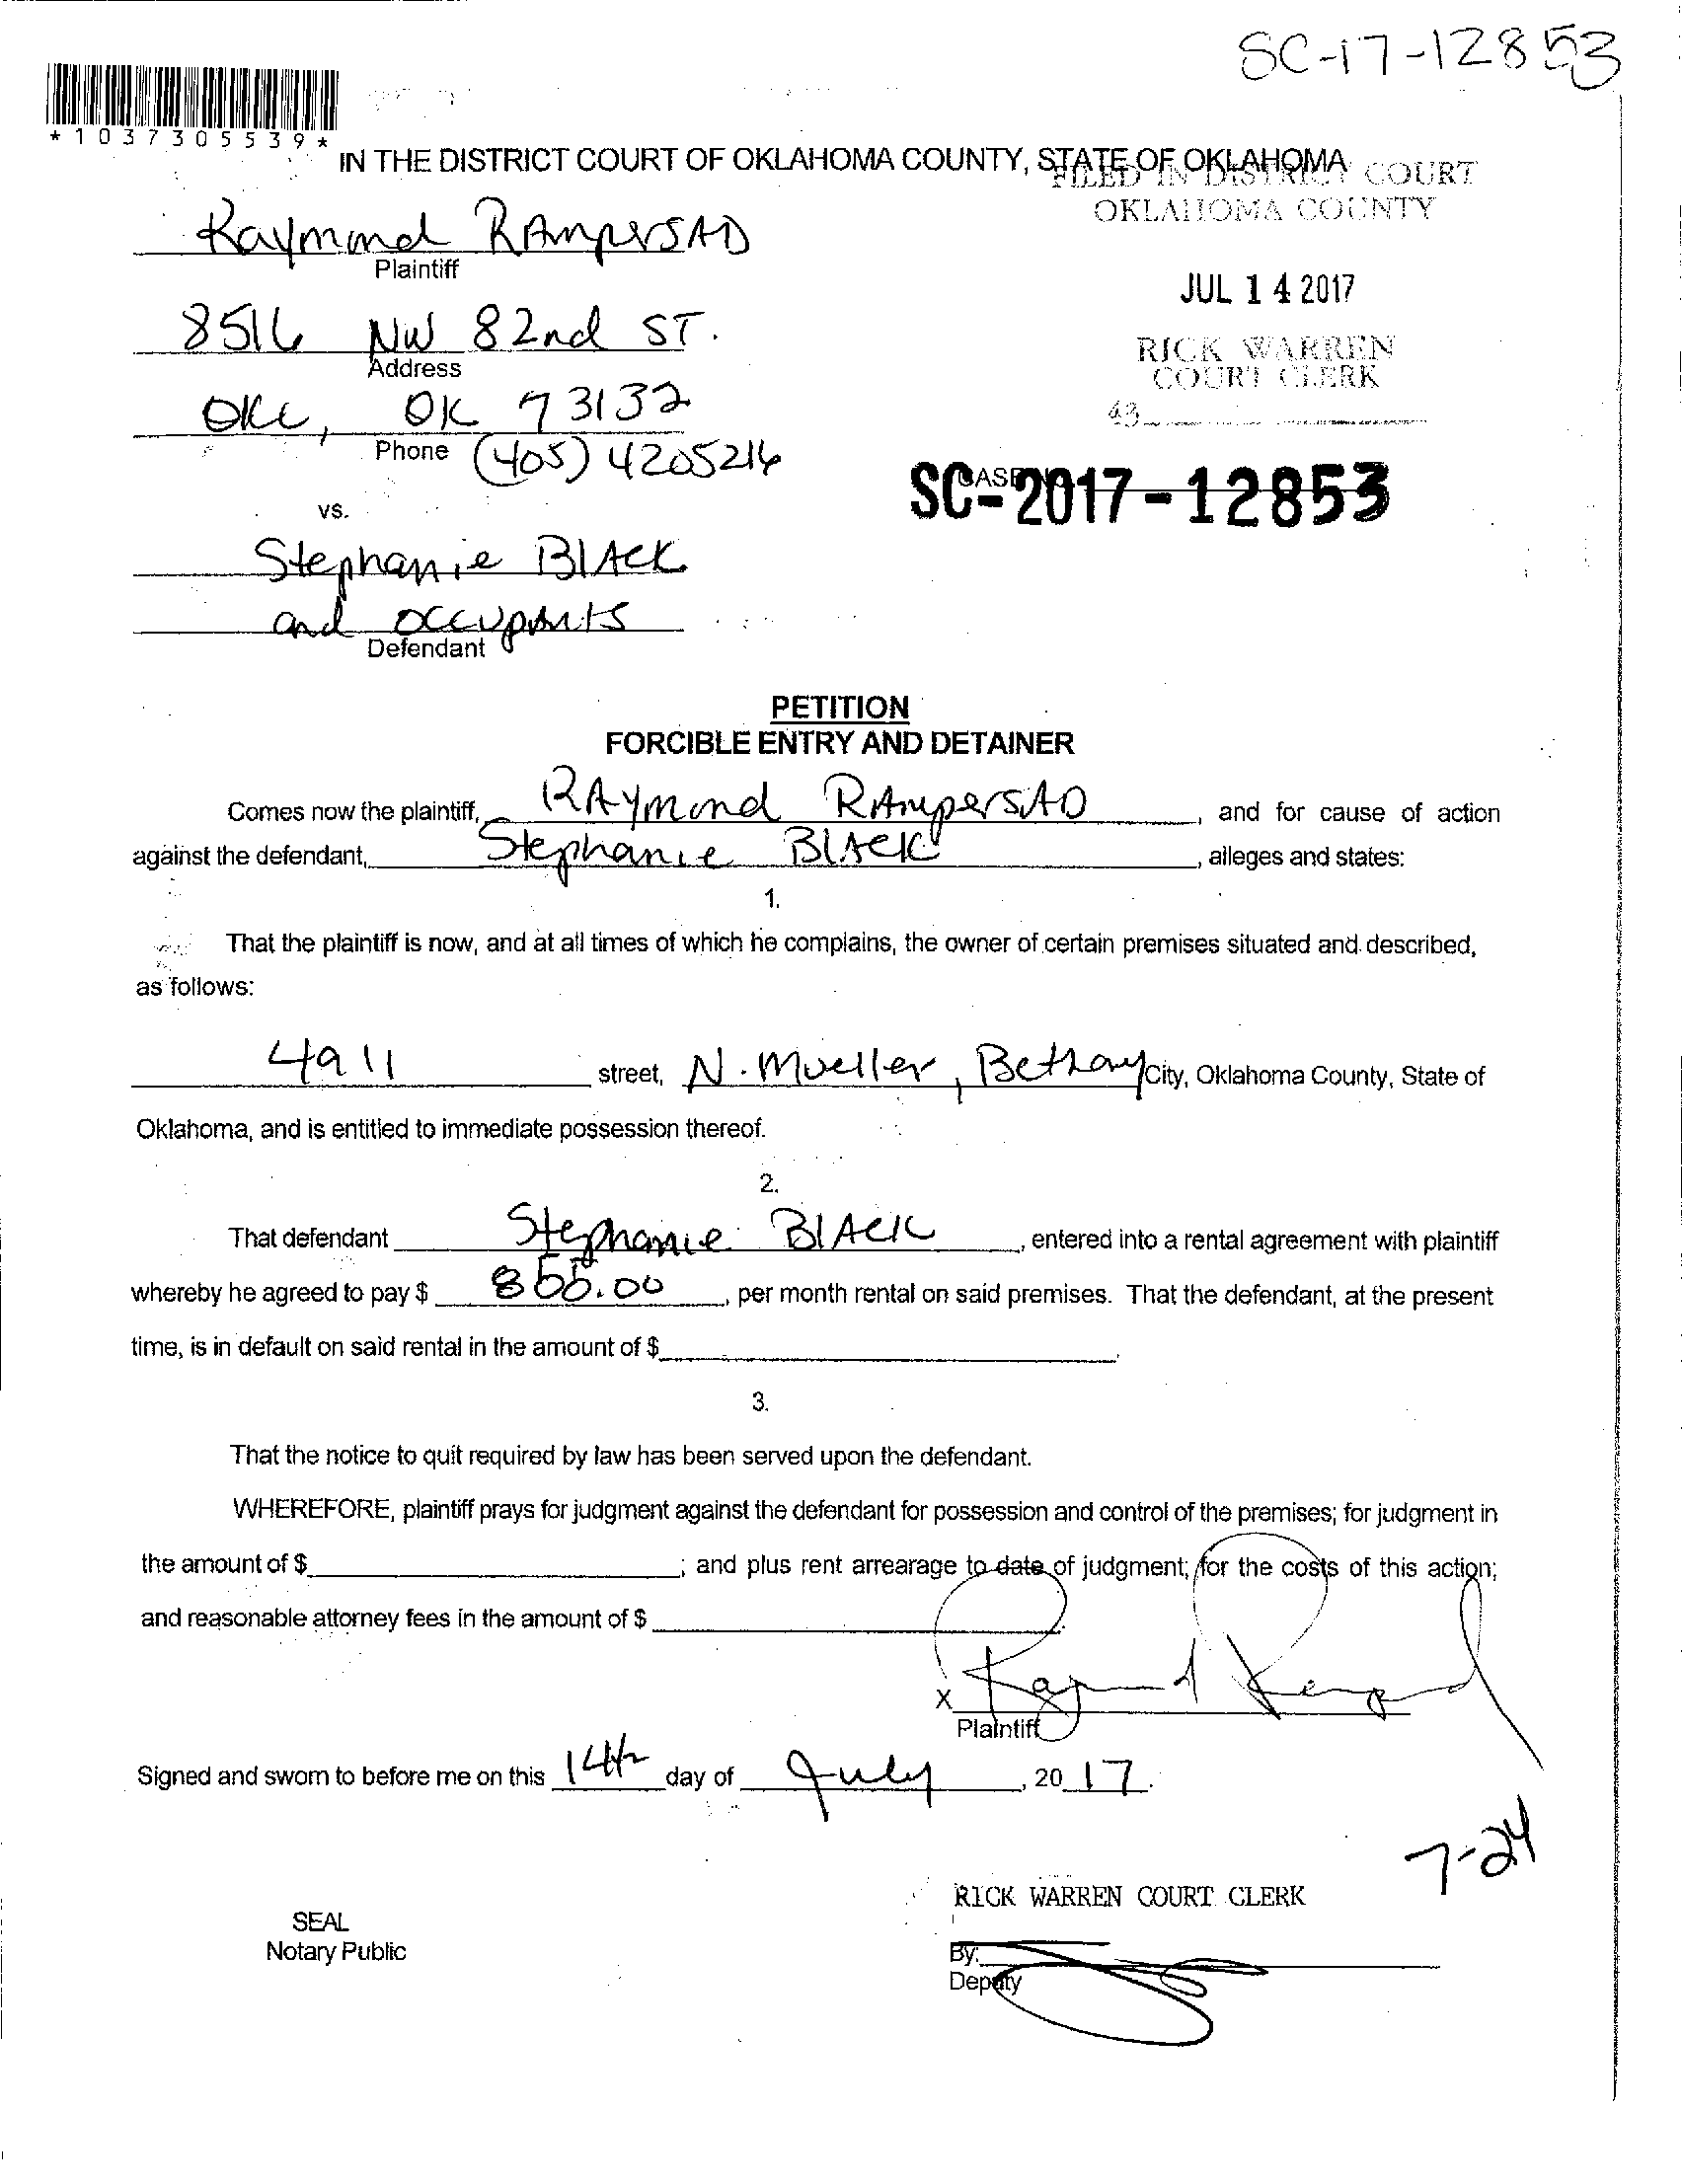 SC-17-12853
*1037305539*
IN THE DISTRICT COURT OF OKLAHOMA COUNTY, STATE OF OKLAHOMA
FILED IN DISTRICT COURT
OKLAHOMA COUNTY
Raymond RAmpersAD
Plaintiff
JUL 14 2017
8516 NW 82nd ST.
Address
RICK WARREN
COURT CLERK
OKC, OK 73132
43
Phone (405) 4205216
SC-2017-12853
vs.
Stephanie BlAck
and occupAnts
Defendant
PETITION
FORCIBLE ENTRY AND DETAINER
Comes now the plaintiff, RAymond RAmpersAD, and for cause of action
against the defendant, Stephanie BlAck, alleges and states:
1.
That the plaintiff is now, and at all times of which he complains, the owner of certain premises situated and described,
as follows:
4911 street, N. Mueller, Bethany City, Oklahoma County, State of
Oklahoma, and is entitled to immediate possession thereof.
2.
That defendant Stephanie BlAck, entered into a rental agreement with plaintiff
whereby he agreed to pay $ .00, per month rental on said premises. That the defendant, at the present
time, is in default on said rental in the amount of $ .
3.
That the notice to quit required by law has been served upon the defendant.
WHEREFORE, plaintiff prays for judgment against the defendant for possession and control of the premises; for judgment in
the amount of $ ; and plus rent arrearage to date of judgment; for the costs of this action;
and reasonable attorney fees in the amount of $ .
X
Plaintiff
Signed and sworn to before me on this 14th day of July, 20 17.
7-24
RICK WARREN COURT CLERK
SEAL
Notary Public
By:
Deputy